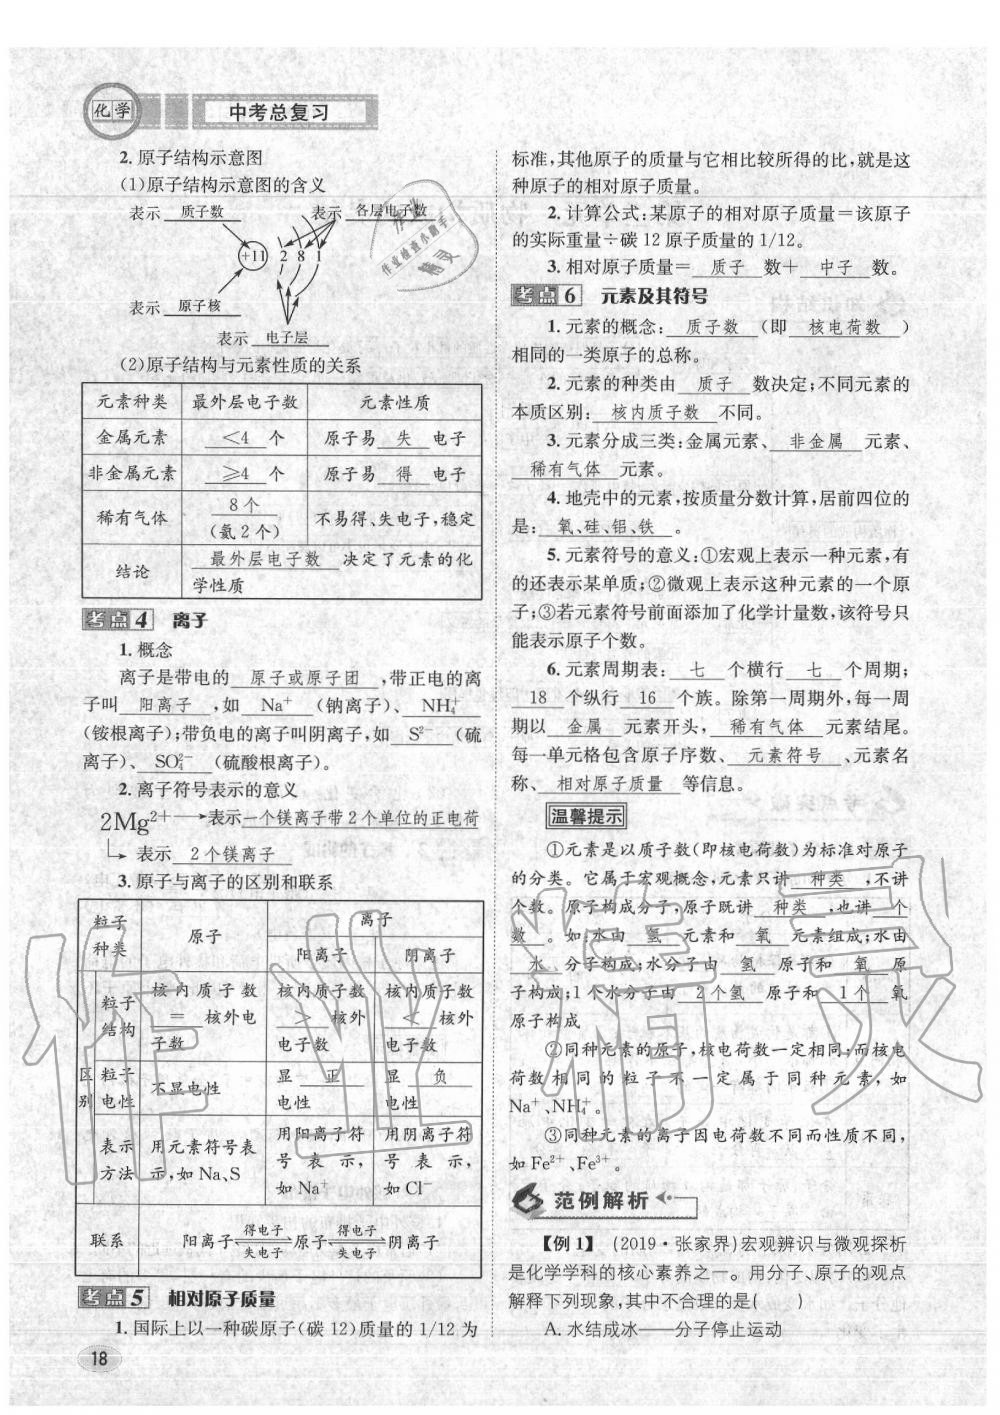 化学 中考总复习
2. 原子结构示意图
(1)原子结构示意图的含义
表示 质子数 表示 各层电子数
+11 2 8 1
表示 原子核
表示 电子层
(2)原子结构与元素性质的关系
元素种类 最外层电子数 元素性质
金属元素 <4 个 原子易 失 电子
非金属元素 ≥4 个 原子易 得 电子
稀有气体 8个 (氦2个) 不易得、失电子,稳定
结论 最外层电子数 决定了元素的化
学性质
考点4 离子
1. 概念
离子是带电的 原子或原子团 ,带正电的离
子叫 阳离子 ,如 Na⁺ (钠离子)、 NH₄⁺
(铵根离子);带负电的离子叫阴离子,如 S²⁻ (硫
离子)、 SO₄²⁻ (硫酸根离子)。
2. 离子符号表示的意义
2Mg²⁺→表示 一个镁离子带2个单位的正电荷
表示 2个镁离子
3. 原子与离子的区别和联系
粒子种类 原子 离子
阳离子 阴离子
区别 粒子结构 核内质子数 = 核外电子数 核内质子数 > 核外电子数 核内质子数 < 核外电子数
粒子电性 不显电性 显 正 电性 显 负 电性
表示方法 用元素符号表示,如 Na、S 用阳离子符号表示,如 Na⁺ 用阴离子符号表示,如 Cl⁻
联系 阳离子 得电子 失电子 原子 得电子 失电子 阴离子
考点5 相对原子质量
1. 国际上以一种碳原子(碳12)质量的1/12为
18
标准,其他原子的质量与它相比较所得的比,就是这
种原子的相对原子质量。
2. 计算公式:某原子的相对原子质量=该原子
的实际重量÷碳12原子质量的1/12。
3. 相对原子质量= 质子 数+ 中子 数。
考点6 元素及其符号
1. 元素的概念: 质子数 (即 核电荷数 )
相同的一类原子的总称。
2. 元素的种类由 质子 数决定;不同元素的
本质区别: 核内质子数 不同。
3. 元素分成三类:金属元素、 非金属 元素、
稀有气体 元素。
4. 地壳中的元素,按质量分数计算,居前四位的
是: 氧、硅、铝、铁 。
5. 元素符号的意义:①宏观上表示一种元素,有
的还表示某单质;②微观上表示这种元素的一个原
子;③若元素符号前面添加了化学计量数,该符号只
能表示原子个数。
6. 元素周期表: 七 个横行 七 个周期;
18 个纵行 16 个族。除第一周期外,每一周
期以 金属 元素开头, 稀有气体 元素结尾。
每一单元格包含原子序数、 元素符号 、元素名
称、 相对原子质量 等信息。
温馨提示
①元素是以质子数(即核电荷数)为标准对原子
的分类。它属于宏观概念,元素只讲 种类 ,不讲
个数。原子构成分子,原子既讲 种类 ,也讲 个
数 。如:水由 氢 元素和 氧 元素组成;水由
水 分子构成;水分子由 氢 原子和 氧 原
子构成;1个水分子由 2个氢 原子和 1个 氧
原子构成
②同种元素的原子,核电荷数一定相同;而核电
荷数相同的粒子不一定属于同种元素,如
Na⁺、NH₄⁺。
③同种元素的离子因电荷数不同而性质不同,
如Fe²⁺、Fe³⁺。
范例解析
【例1】 (2019·张家界)宏观辨识与微观探析
是化学学科的核心素养之一。用分子、原子的观点
解释下列现象,其中不合理的是( )
A. 水结成冰——分子停止运动
作业精灵